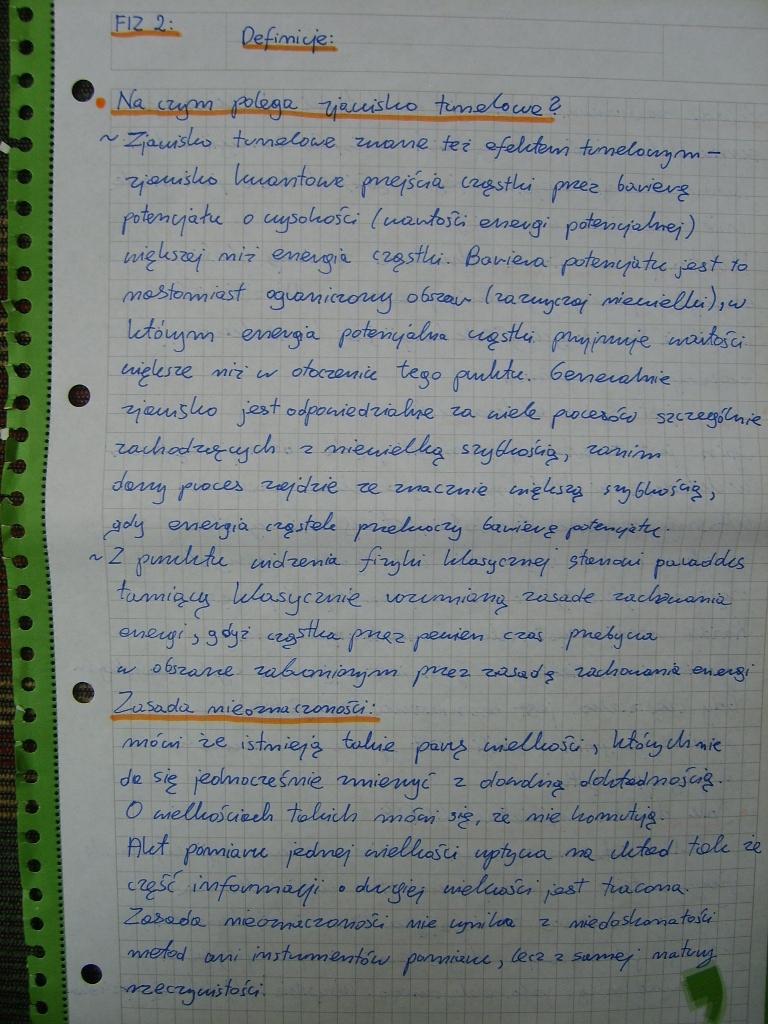 FIZ 2:
Definicje:
Na czym polega zjawisko tunelowe?
~ Zjawisko tunelowe znane też efektem tunelowym –
zjawisko kwantowe przejścia cząstki przez barierę
potencjału o wysokości (wartości energi potencjalnej)
większej niż energia cząstki. Bariera potencjału jest to
nastomiast ograniczony obszar (zazwyczaj niewielki), w
którym energia potencjalna cząstki przyjmuje wartości
większe niż w otoczeniu tego punktu. Generalnie
zjawisko jest odpowiedzialne za wiele procesów szczególnie
zachodzących z niewielką szybkością, zanim
dany proces zajdzie ze znacznie większą szybkością,
gdy energia cząstek przekroczy barierę potencjału.
~ Z punktu widzenia fizyki klasycznej stanowi paradoks
łamiący klasycznie rozumianą zasadę zachowania
energi, gdyż cząstka przez pewien czas przebywa
w obszarze zabronionym przez zasadę zachowania energi
Zasada nieoznaczoności:
mówi że istnieją takie pary wielkości, których nie
da się jednocześnie zmierzyć z dowolną dokładnością.
O wielkościach takich mówi się, że nie komutują.
Akt pomiaru jednej wielkości wpływa na układ tak że
część informacji o drugiej wielkości jest tracona.
Zasada nieoznaczoności nie wynika z niedoskonałości
metod ani instrumentów pomiaru, lecz z samej natury
rzeczywistości.